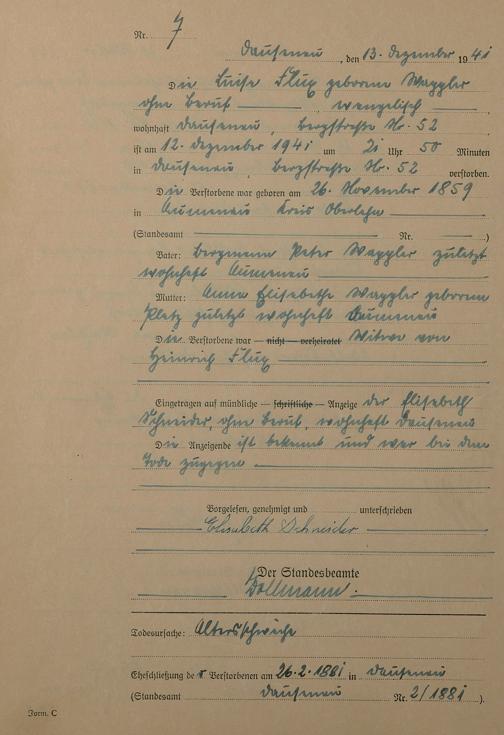 Nr. 7
Dausenau, den 13. Dezember 1941
Die Luise Flux geborene Waggler
ohne Beruf evangelisch
wohnhaft Dausenau, Bergstraße Nr. 52
ist am 12. Dezember 1941 um 21 Uhr 50 Minuten
in Dausenau, Bergstraße Nr. 52 verstorben.
Die Verstorbene war geboren am 26. November 1859
in Aumenau Kreis Oberlahn
(Standesamt Nr. )
Vater: Bergmann Peter Waggler zuletzt
wohnhaft Aumenau
Mutter: Anna Elisabethe Waggler geborene
Pletz zuletzt wohnhaft Aumenau
Die Verstorbene war — nicht — verheiratet Witwe von
Heinrich Flux
Eingetragen auf mündliche — schriftliche — Anzeige der Elisabeth
Schneider, ohne Beruf, wohnhaft Dausenau
Die Anzeigende ist bekannt und war bei dem
Tode zugegen.
Vorgelesen, genehmigt und unterschrieben
Elisabeth Schneider
Der Standesbeamte
Dollmann.
Todesursache: Altersschwäche
Eheschließung der Verstorbenen am 26.2.1881 in Dausenau
(Standesamt Dausenau Nr. 2/1881).
Form. C